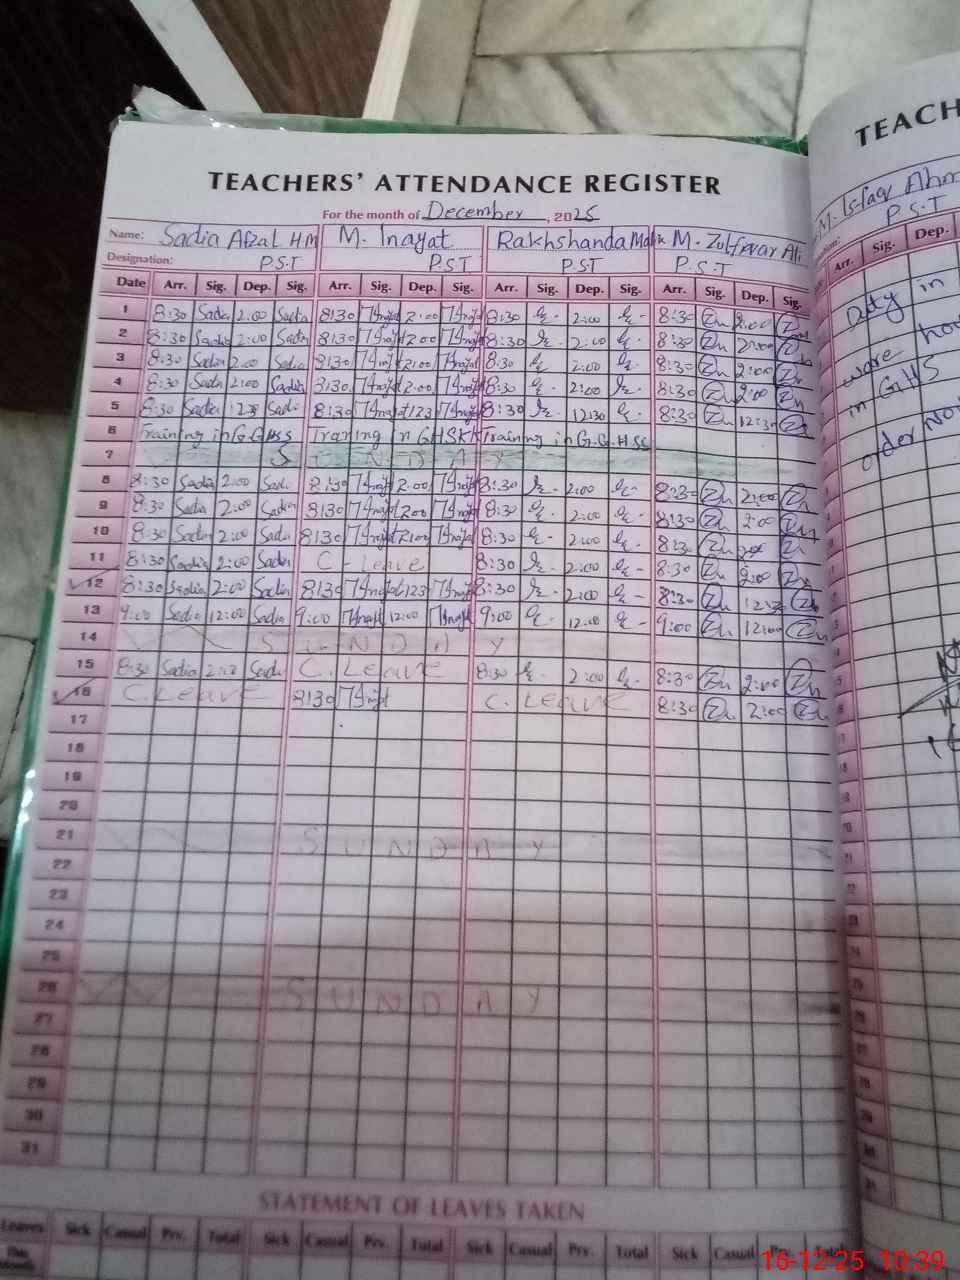 TEACHERS' ATTENDANCE REGISTER
For the month of December, 2025
Name: Sadia Afzal H.M M. Inayat Rakhshanda M. Zulfiqar Ali
Designation: P.S.T P.S.T PST P.S.T
Date Arr. Sig. Dep. Sig. Arr. Sig. Dep. Sig. Arr. Sig. Dep. Sig. Arr. Sig. Dep. Sig.
1 8:30 Sadia 2:00 Sadia 8:30 2:00 8:30 2:00 8:30 2:00
2 8:30 Sadia 2:00 Sadia 8:30 2:00 8:30 2:00 8:30 2:00
3 8:30 Sadia 2:00 Sadia 8:30 2:00 8:30 2:00 8:30 2:00
4 8:30 Sadia 2:00 Sadia 8:30 2:00 8:30 2:00 8:30 2:00
5 8:30 Sadia Sadia 8:30 8:30 12:30 8:30 12:30
6 Training in G.GHSS Training in GHSKK Training in G.G.H.SS
7 S U N D A Y
8 8:30 Sadia 2:00 Sadia 8:30 2:00 8:30 2:00 8:30 2:00
9 8:30 Sadia 2:00 Sadia 8:30 2:00 8:30 2:00 8:30 2:00
10 8:30 Sadia 2:00 Sadia 8:30 2:00 8:30 2:00 8:30 2:00
11 8:30 Sadia 2:00 Sadia C-Leave 8:30 2:00 8:30 2:00
12 8:30 Sadia 2:00 Sadia 8:30 8:30 2:00 8:30 12:30
13 9:00 Sadia 12:00 Sadia 9:00 12:00 9:00 12:00 9:00 12:00
14 S U N D A Y
15 8:30 Sadia Sadia C. Leave 8:30 2:00 8:30 2:00
16 C. Leave 8:30 C. Leave 8:30 2:00
17
18
19
20
21 S U N D A Y
22
23
24
25
26 S U N D A Y
27
28
29
30
31
STATEMENT OF LEAVES TAKEN
Leaves Sick Casual Prv. Total Sick Casual Prv. Total Sick Casual Prv. Total Sick Casual Prv. Total
This Month
TEACH
M. Isfaq Ahm
P.S.T
Arr. Sig. Dep.
Duty in
ware hou
in GHS
order No
16-12-25 10:39